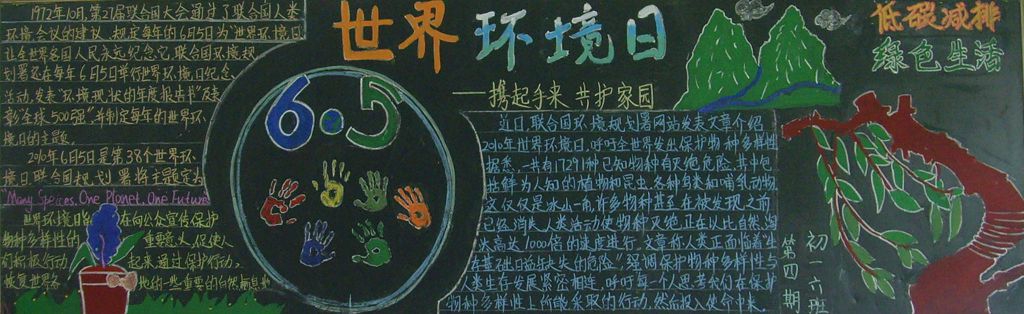 1972年10月,第27届联合国大会通过了联合国人类
环境会议的建议,规定每年的6月5日为"世界环境日,
让全世界各国人民永远纪念它,联合国环境规
划署还在每年6月5日举行世界环境日纪念
活动,发表"环境现状的年度报告书"及表
彰"全球500强",并制定每年的世界环
境日的主题。
2010年6月5日是第38个世界环
境日,联合国规划署将主题定为
Many Speices. One Planet. One Future
世界环境日 在向公众宣传保护
物种多样性的 重要意义,促使人
们积极行动 起来,通过保护行动,
恢复世界各 地的一些重要的自然
6.5
世界环境日
——携起手来 共护家园
近日,联合国环境规划署网站发表文章介绍
2010年世界环境日,呼吁全世界发出保护物种多样性
据悉,一共有17291种已知物种有灭绝危险,其中包
世鲜为人知的植物和昆虫,各种鸟类和哺乳动物
这仅仅是冰山一角,许多物种甚至在被发现之前
已经消失,人类活动使物种灭绝正在以比自然淘
汰高达1000倍的速度进行,文章称人类正面临着生
存基础日益缺失的危险",强调保护物种多样性与
人类生存发展紧密相连,呼吁每一个人思考我们在保护
物种多样性上所能采取的行动,然后投入使命中来.
低碳减排
绿色生活
初一六班
第四期